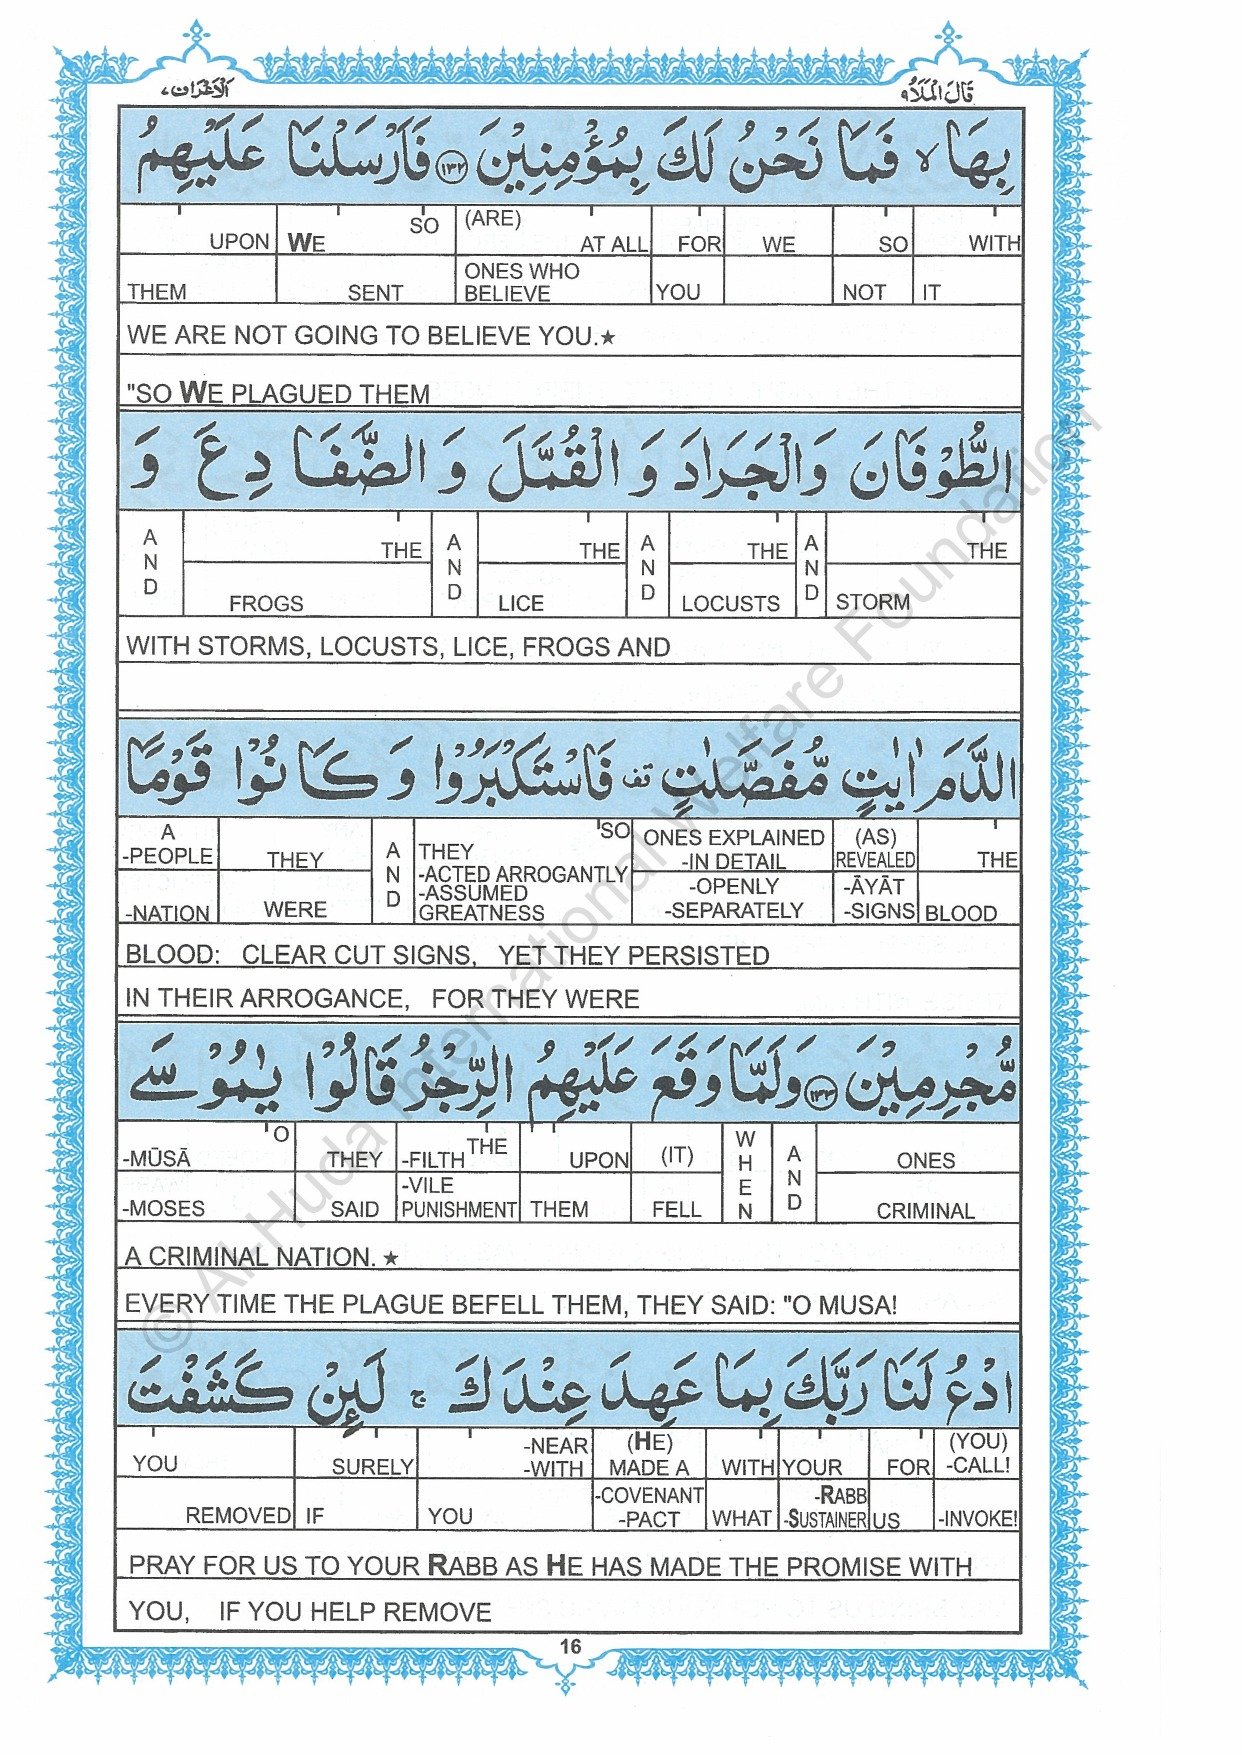 الاعراف ٧
قَالَ الْمَلَاُ ٩
بِهَا ۙ فَمَا نَحْنُ لَكَ بِمُؤْمِنِيْنَ ﴿١٣٢﴾ فَاَرْسَلْنَا عَلَيْهِمُ
UPON WE SO (ARE) AT ALL FOR WE SO WITH
THEM SENT ONES WHO BELIEVE YOU NOT IT
WE ARE NOT GOING TO BELIEVE YOU.★
"SO WE PLAGUED THEM
الطُّوْفَانَ وَالْجَرَادَ وَ الْقُمَّلَ وَ الضَّفَادِعَ وَ
AND THE AND THE AND THE AND THE
FROGS LICE LOCUSTS STORM
WITH STORMS, LOCUSTS, LICE, FROGS AND
الدَّمَ اٰيٰتٍ مُّفَصَّلٰتٍ قف فَاسْتَكْبَرُوْا وَ كَانُوْا قَوْمًا
A -PEOPLE THEY AND THEY SO ONES EXPLAINED -IN DETAIL (AS) REVEALED THE
-NATION WERE -ACTED ARROGANTLY -ASSUMED GREATNESS -OPENLY -SEPARATELY -ĀYĀT -SIGNS BLOOD
BLOOD: CLEAR CUT SIGNS, YET THEY PERSISTED
IN THEIR ARROGANCE, FOR THEY WERE
مُّجْرِمِيْنَ ﴿١٣٣﴾ وَلَمَّا وَقَعَ عَلَيْهِمُ الرِّجْزُ قَالُوْا يٰمُوْسَى
-MŪSĀ O THEY -FILTH THE UPON (IT) WHEN AND ONES
-MOSES SAID -VILE PUNISHMENT THEM FELL CRIMINAL
A CRIMINAL NATION. ★
EVERY TIME THE PLAGUE BEFELL THEM, THEY SAID: "O MUSA!
ادْعُ لَنَا رَبَّكَ بِمَا عَهِدَ عِنْدَكَ ۚ لَئِنْ كَشَفْتَ
YOU SURELY -NEAR -WITH (HE) MADE A WITH YOUR FOR (YOU) -CALL!
REMOVED IF YOU -COVENANT -PACT WHAT -RABB -SUSTAINER US -INVOKE!
PRAY FOR US TO YOUR RABB AS HE HAS MADE THE PROMISE WITH
YOU, IF YOU HELP REMOVE
16
© Al-Huda International Welfare Foundation